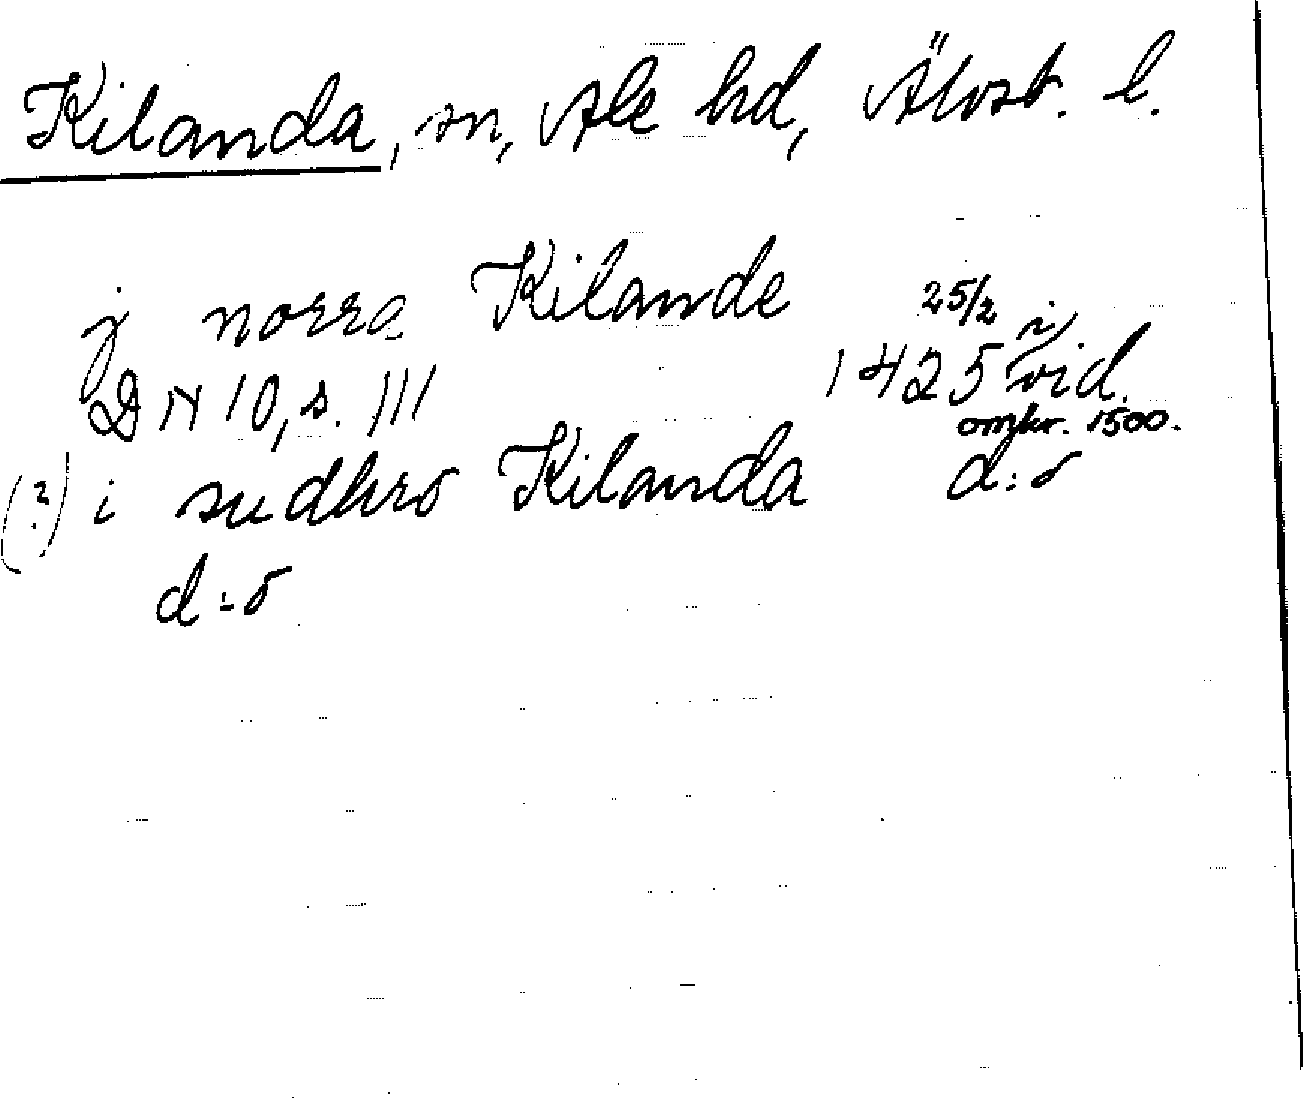 Kilanda, sn, Ale hd, Älvsb. l.
j norra Kilande 25/2 1425 i vid. omkr. 1500.
DN 10, s. 111
(?) i sudhro Kilanda d:o
d:o